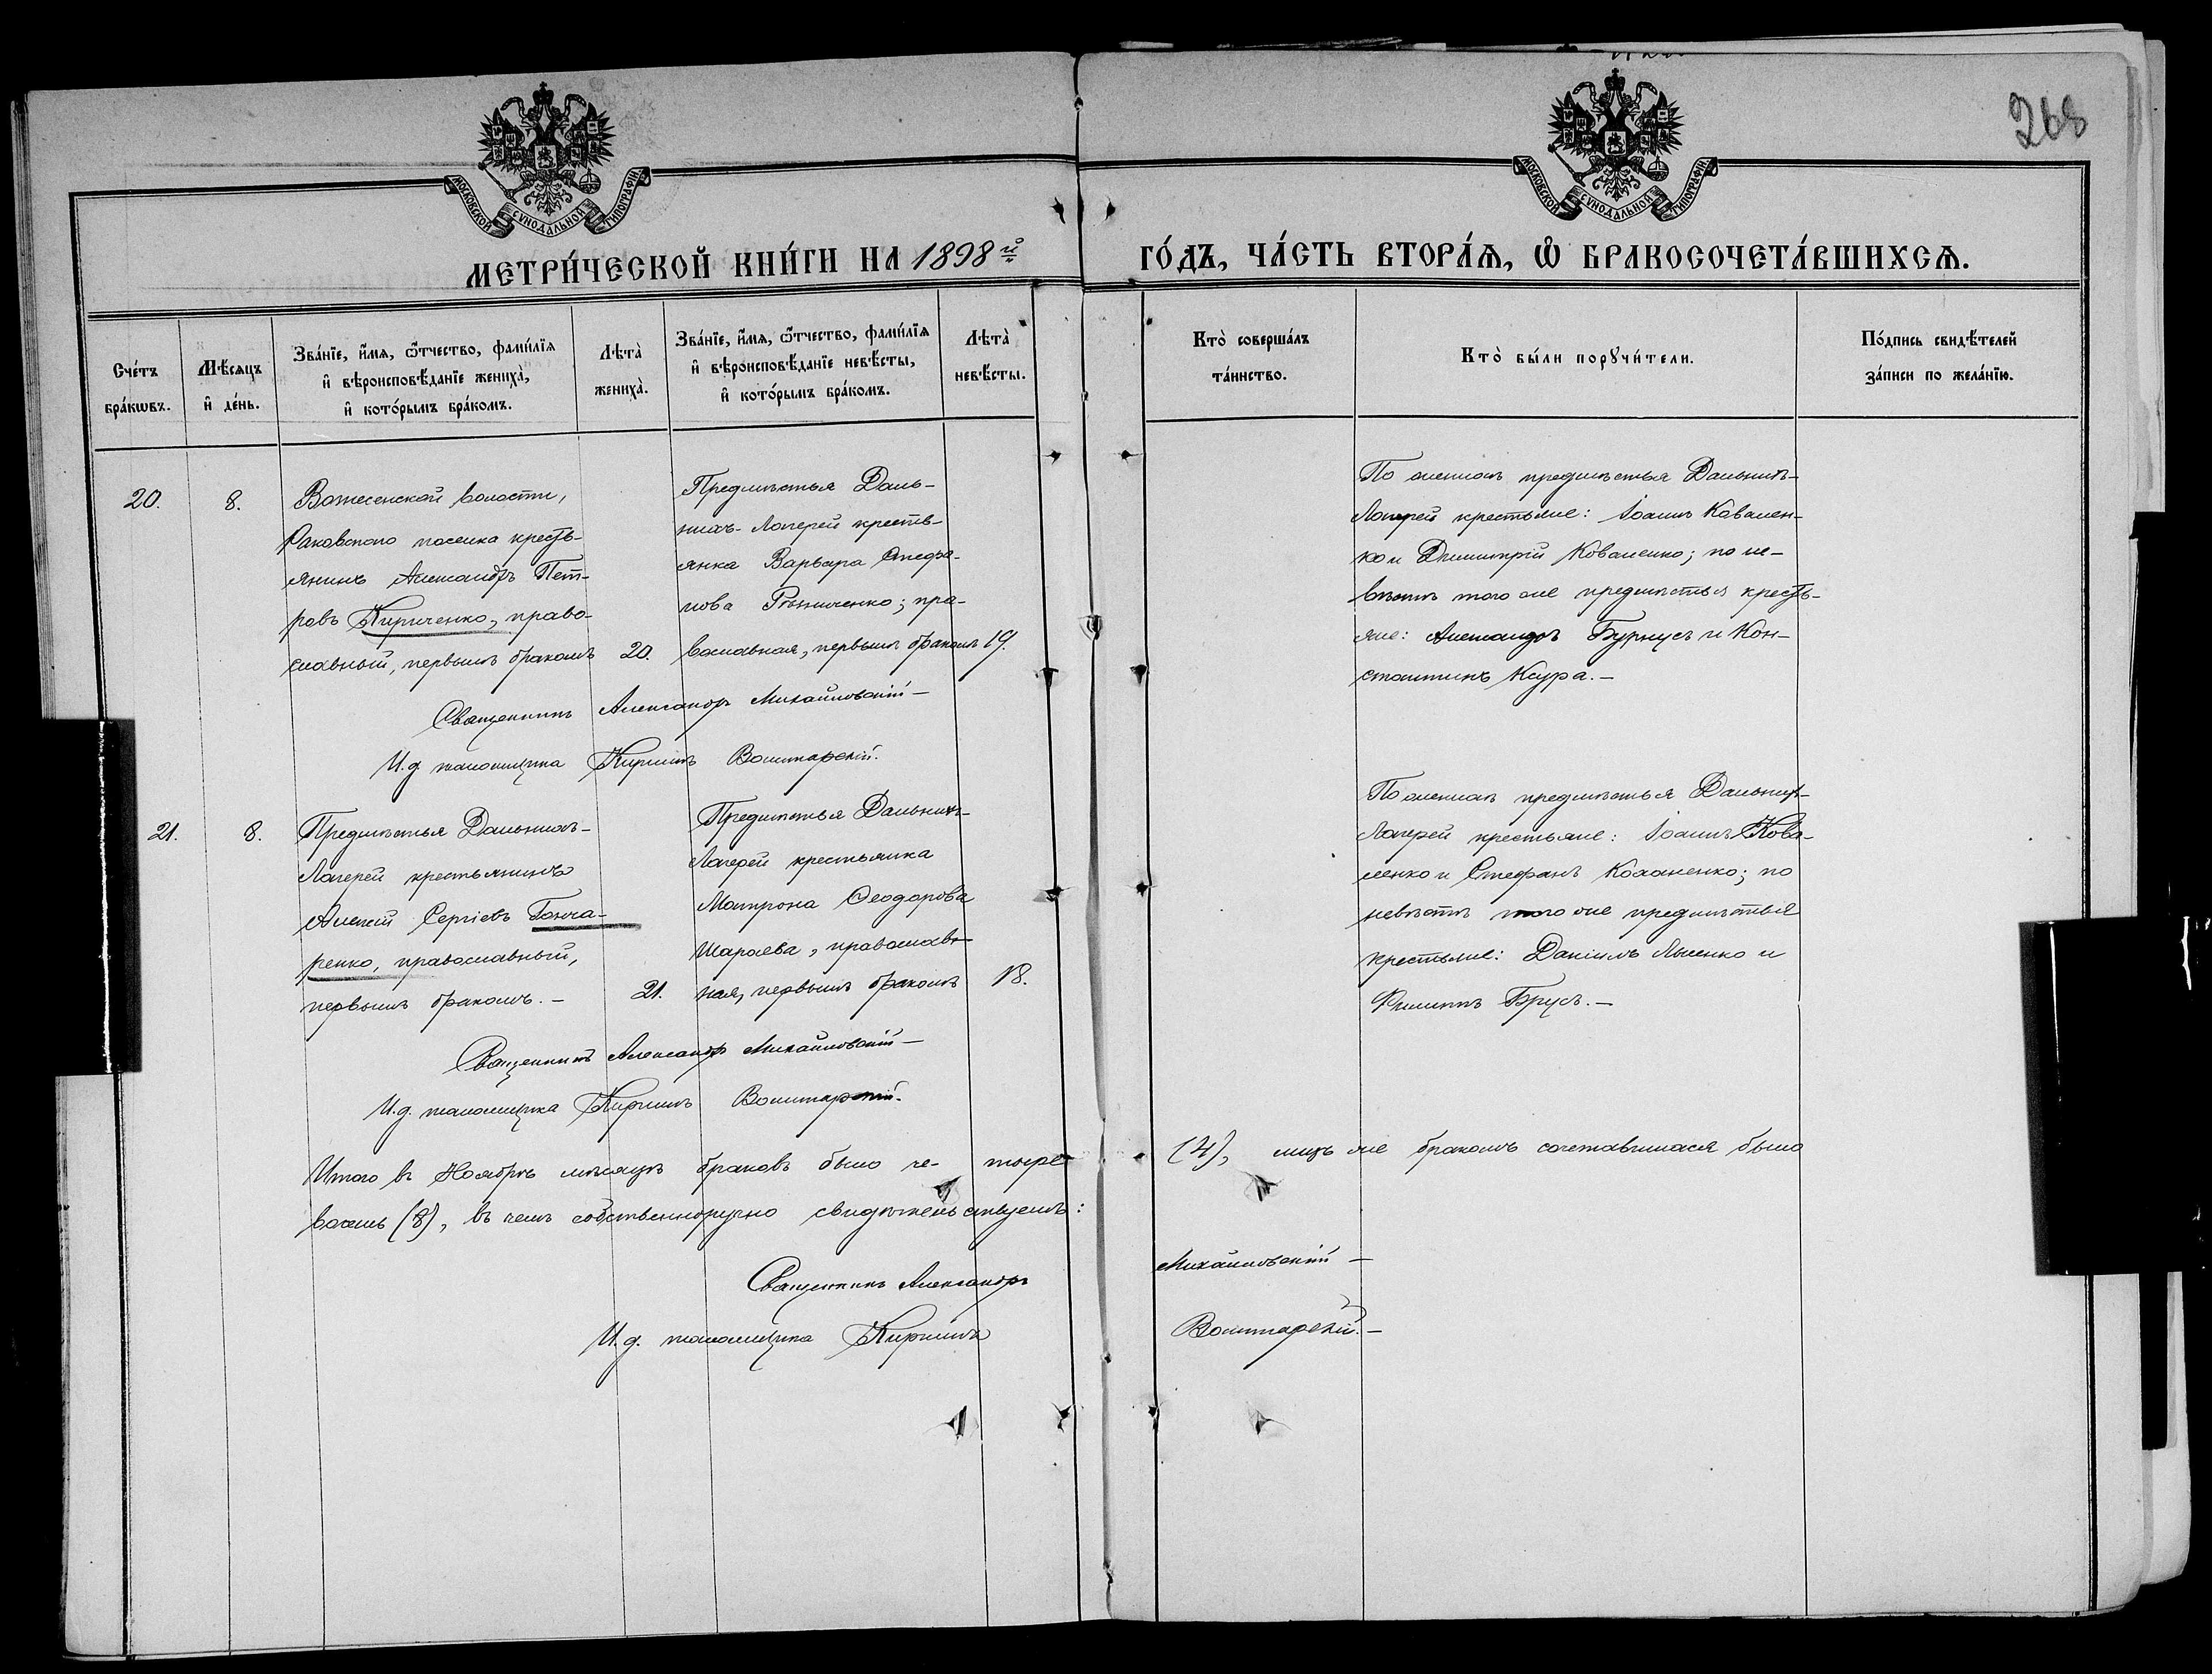 268
МОСКОВСКОЙ СѴНОДАЛЬНОЙ ТИПОГРАФІИ
МОСКОВСКОЙ СѴНОДАЛЬНОЙ ТИПОГРАФІИ
МЕТРИ́ЧЕСКОЙ КНИ́ГИ НА 1898й ГО́ДЪ, ЧА́СТЬ ВТОРА́Я, Ѿ БРАКОСОЧЕТА́ВШИХСЯ.
Сче́тъ
бра́кѡвъ.
Мѣ́сяцъ
и҆ де́нь.
Зва́нїе, и҆́мя, ѻ҆́тчество, фами́лїя
и҆ вѣроисповѣ́данїе жениха̀,
и҆ кото́рымъ бра́комъ.
Лѣта̀
жениха̀.
Зва́нїе, и҆́мя, ѻ҆́тчество, фами́лїя
и҆ вѣроисповѣ́данїе невѣ́сты,
и҆ кото́рымъ бра́комъ.
Лѣта̀
невѣ́сты.
Кто̀ соверша́лъ
та́инство.
Кто̀ бы́ли порꙋчи́тели.
По́дпись свидѣ́телей
за́писи по жела́нїю.
20.
8.
Вознесенской волости,
Раковскаго поселка кресть-
янинъ Александръ Пет-
ровъ Кириченко, право-
славный, первымъ бракомъ
20.
Предмѣстья Даль-
нихъ-Лагерей кресть-
янка Варвара Стефа-
нова Рѣзниченко; пра-
вославная, первымъ бракомъ
19.
По женихѣ предмѣстья Дальнихъ-
Лагерей крестьяне: Іоаннъ Ковален-
ко и Димитрій Коваленко; по не-
вѣстѣ того же предмѣстья кресть-
яне: Александръ Бурнусъ и Кон-
стантинъ Кура.-
Священникъ Александръ Михайловскій-
И.д. псаломщика Кириллъ Волитарскій.
21.
8.
Предмѣстья Дальнихъ-
Лагерей крестьянинъ
Алексій Сергіевъ Гонча-
ренко, православный,
первымъ бракомъ.-
21.
Предмѣстья Дальнихъ-
Лагерей крестьянка
Матрона Ѳеодорова
Шараева, православ-
ная, первымъ бракомъ
18.
По женихѣ предмѣстья Дальнихъ-
Лагерей крестьяне: Іоаннъ Кова-
ленко и Стефанъ Коханенко; по
невѣстѣ того же предмѣстья
крестьяне: Даніилъ Лысенко и
Филиппъ Брусъ.-
Священникъ Александръ Михайловскій-
И.д. псаломщика Кириллъ Волитарскій.
Итого въ Ноябрѣ мѣсяцѣ браковъ было че-тыре (4), лицъ же бракомъ сочетавшихся было
восемь (8), въ чемъ собственноручно свидѣтельствуемъ:
Священникъ Александръ Михайловскій-
И.д. псаломщика Кириллъ Волитарскій.-